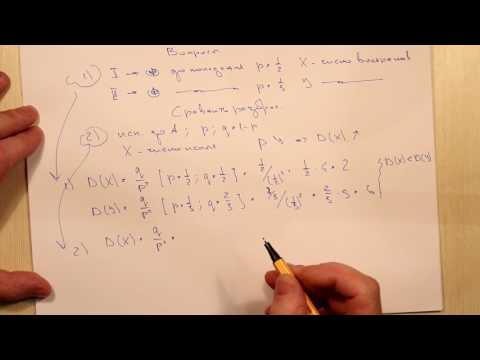 Вопрос
1) I → ⊕ до попадания p = 1/2 X - число выстрелов
II → ⊕ p = 1/3 Y
Сравнить разброс.
2) исп. до A ; p ; q = 1-p
X - число исп. p ↓ => D(X) ↑
1) D(X) = q/p² [p = 1/2 ; q = 1/2] = 1/2 / (1/2)² =
D(Y) = q/p² [p = 1/3 ; q = 2/3] = 2/3 / (1/3)² = } D(X) < D(Y)
2) D(X) = q/p² =